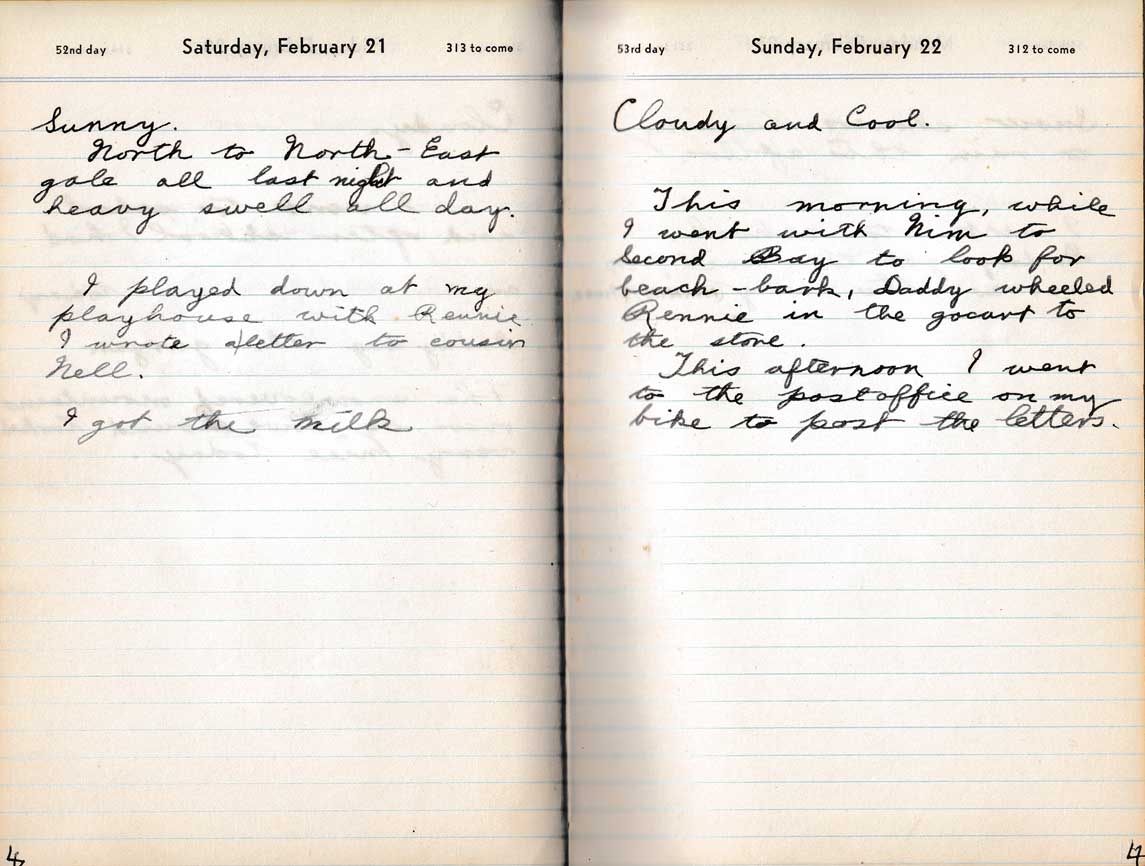 52nd day Saturday, February 21 313 to come
Sunny.
North to North-East
gale all last night and
heavy swell all day.
I played down at my
playhouse with Rennie
I wrote a letter to cousin
Nell.
I got the milk
4
53rd day Sunday, February 22 312 to come
Cloudy and Cool.
This morning, while
I went with Nim to
Second Bay to look for
beach-bark, Daddy wheeled
Rennie in the gocart to
the store.
This afternoon I went
to the postoffice on my
bike to post the letters.